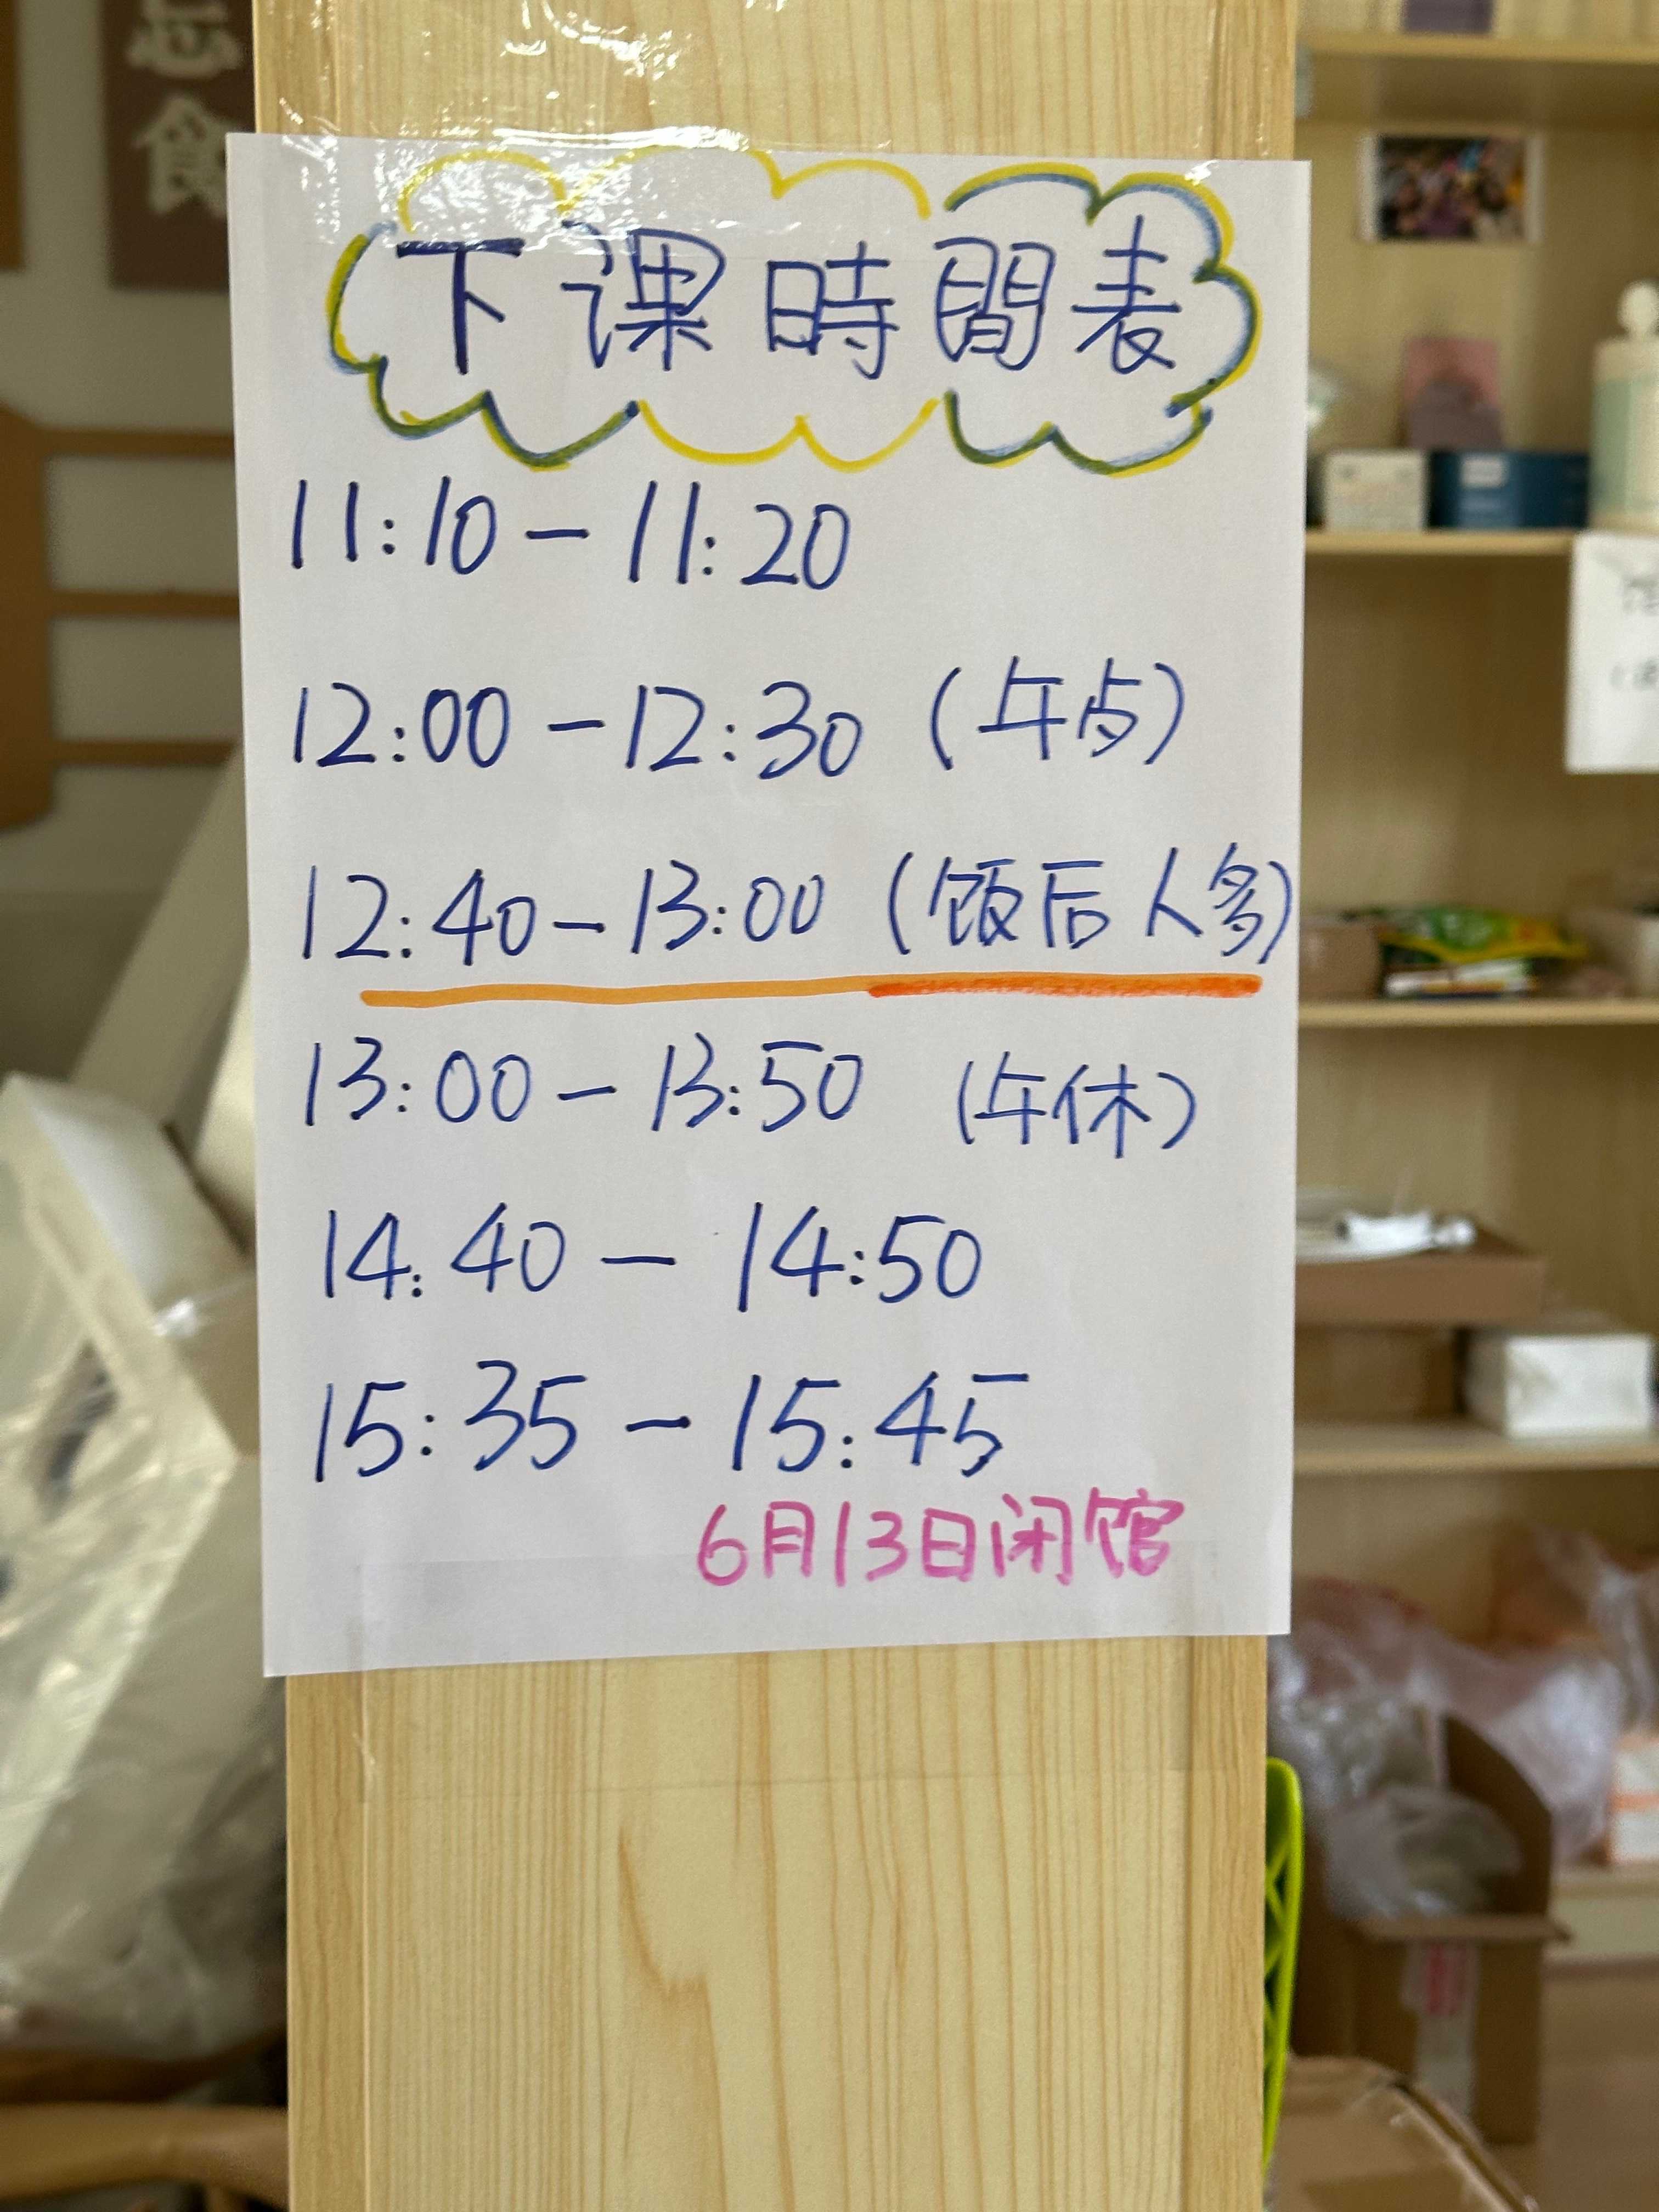 忘
食
下课時間表
11:10－11:20
12:00－12:30（午点）
12:40－13:00（饭后人多）
13:00－13:50（午休）
14:40－14:50
15:35－15:45
6月13日闭馆